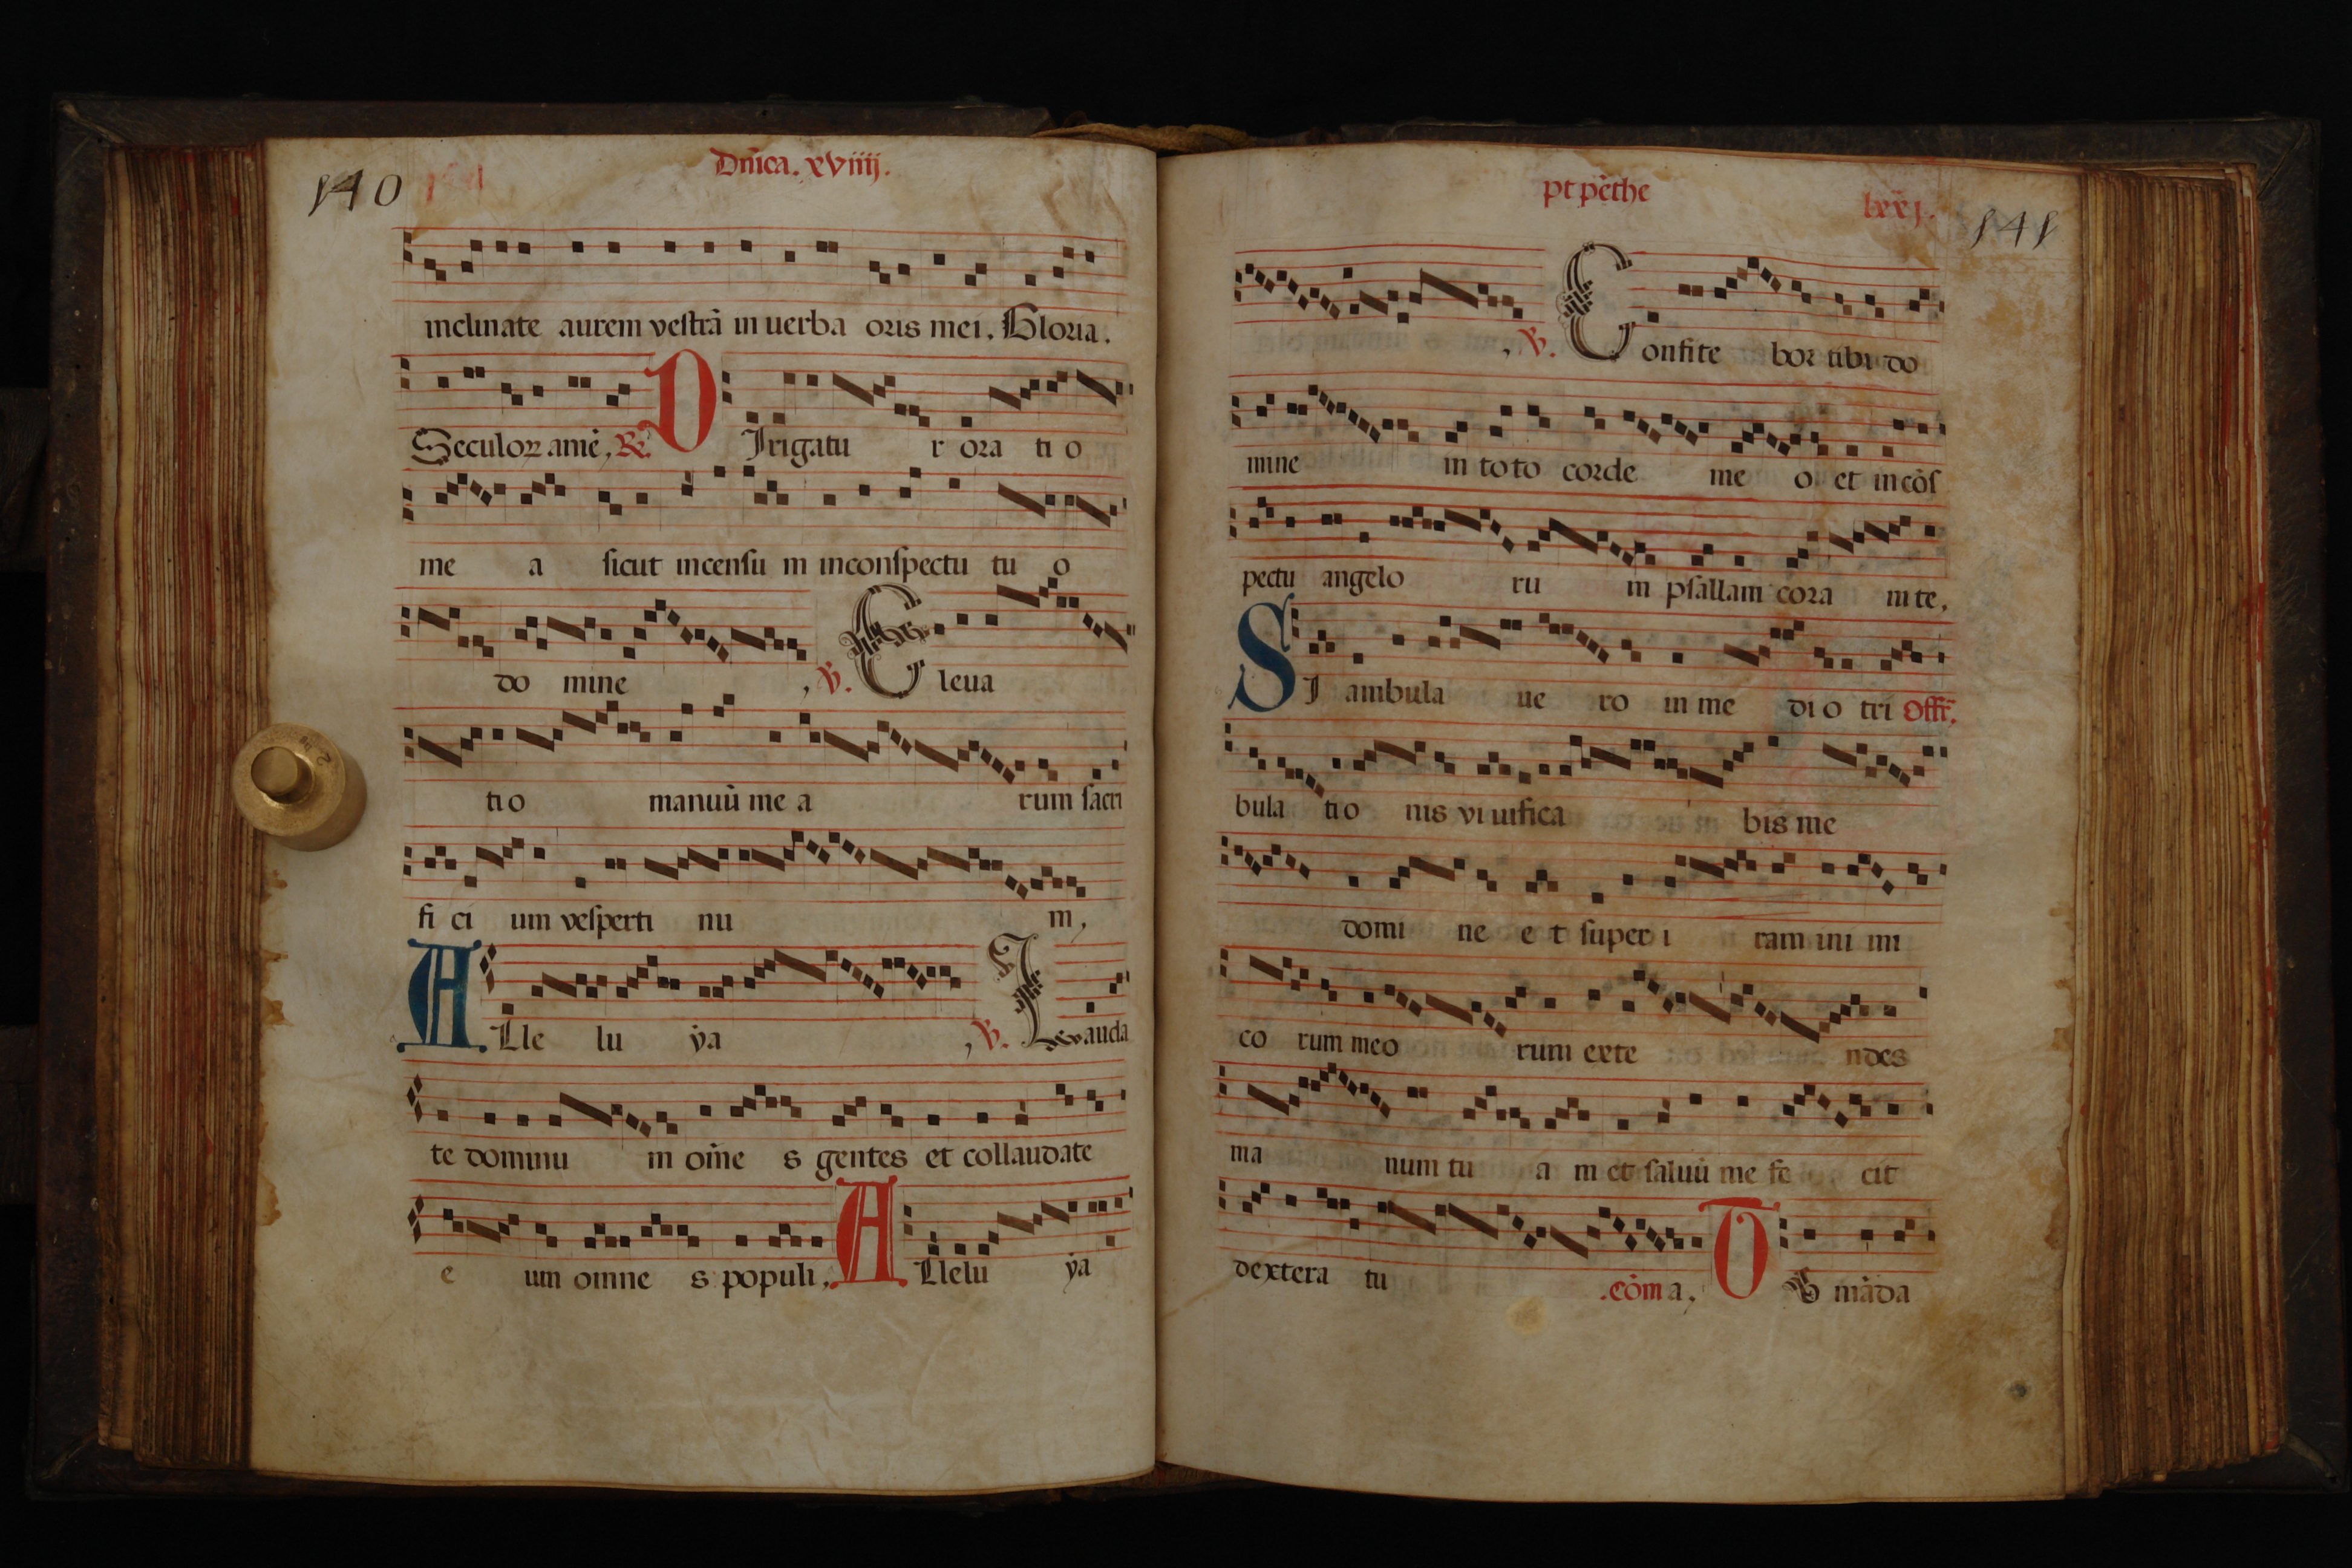 140
Dn̄ica. xviiij.
inclinate aurem vestrā in uerba oris mei. Gloria.
Seculoꝝ amē, R. DIrigatu r ora ti o
me a sicut incensu m inconspectu tu o
do mine , V. Eleua
ti o manuū me a rum sacri
fi ci um vesperti nu m,
ALle lu ẏa , V. Lauda
te dominu m om̄e s gentes et collaudate
e um omne s populi, ALlelu ẏa
pt pēthe
lxxj.
141
, V. Confite bor tibi do
mine in toto corde me o et in cōs
pectu angelo ru m psallam cora m te,
SI ambula ue ro in me di o tri Offr̄.
bula tio nis vi uifica bis me
domi ne e t super i ram ini mi
co rum meo rum exte ndes
ma num tu a m et saluū me fe cit
dextera tu .cōm a, TU māda